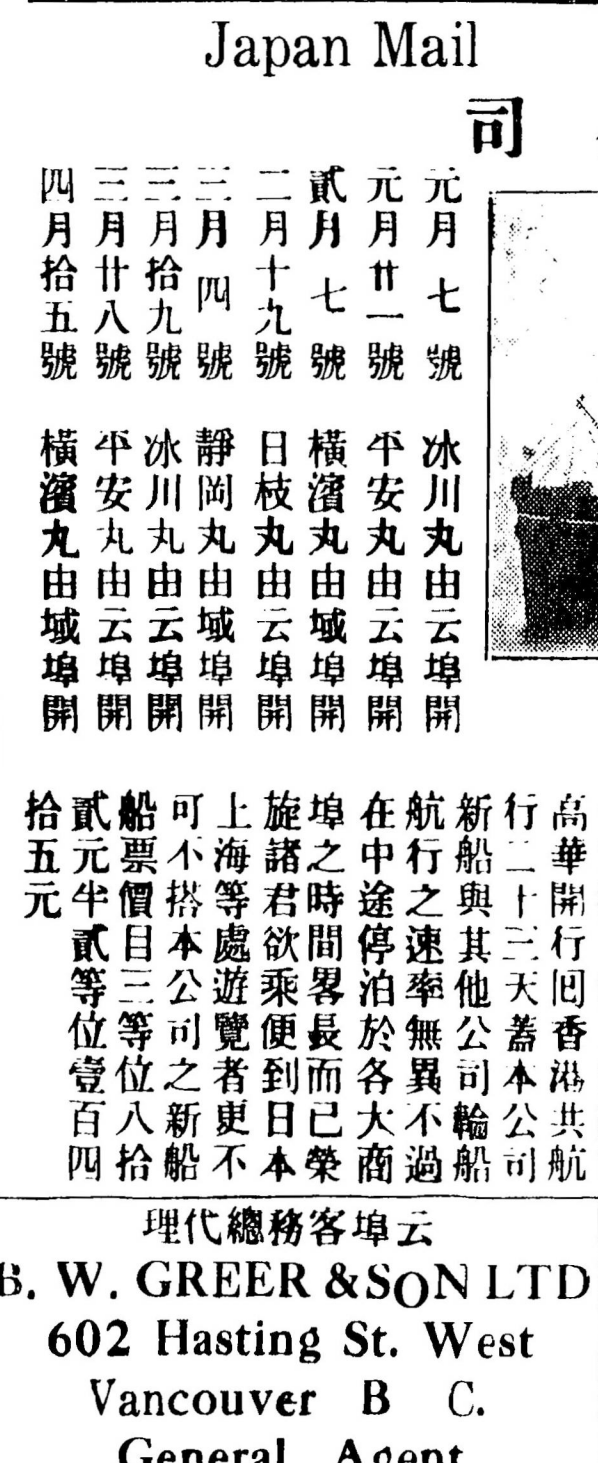 Japan Mail
司
元月七號 冰川丸由云埠開
元月廿一號 平安丸由云埠開
貳月七號 橫濱丸由域埠開
二月十九號 日枝丸由云埠開
三月四號 靜岡丸由域埠開
三月拾九號 冰川丸由云埠開
三月廿八號 平安丸由云埠開
四月拾五號 橫濱丸由域埠開
高華開行囘香港共航
行二十三天蓋本公司
新船與其他公司輪船
航行之速率無異不過
在中途停泊於各大商
埠之時間畧長而已榮
旋諸君欲乘便到日本
上海等處遊覽者更不
可不搭本公司之新船
船票價目三等位八拾
貳元半貳等位壹百四
拾五元
云埠客務總代理
B. W. GREER & SON LTD
602 Hasting St. West
Vancouver B C.
General Agent